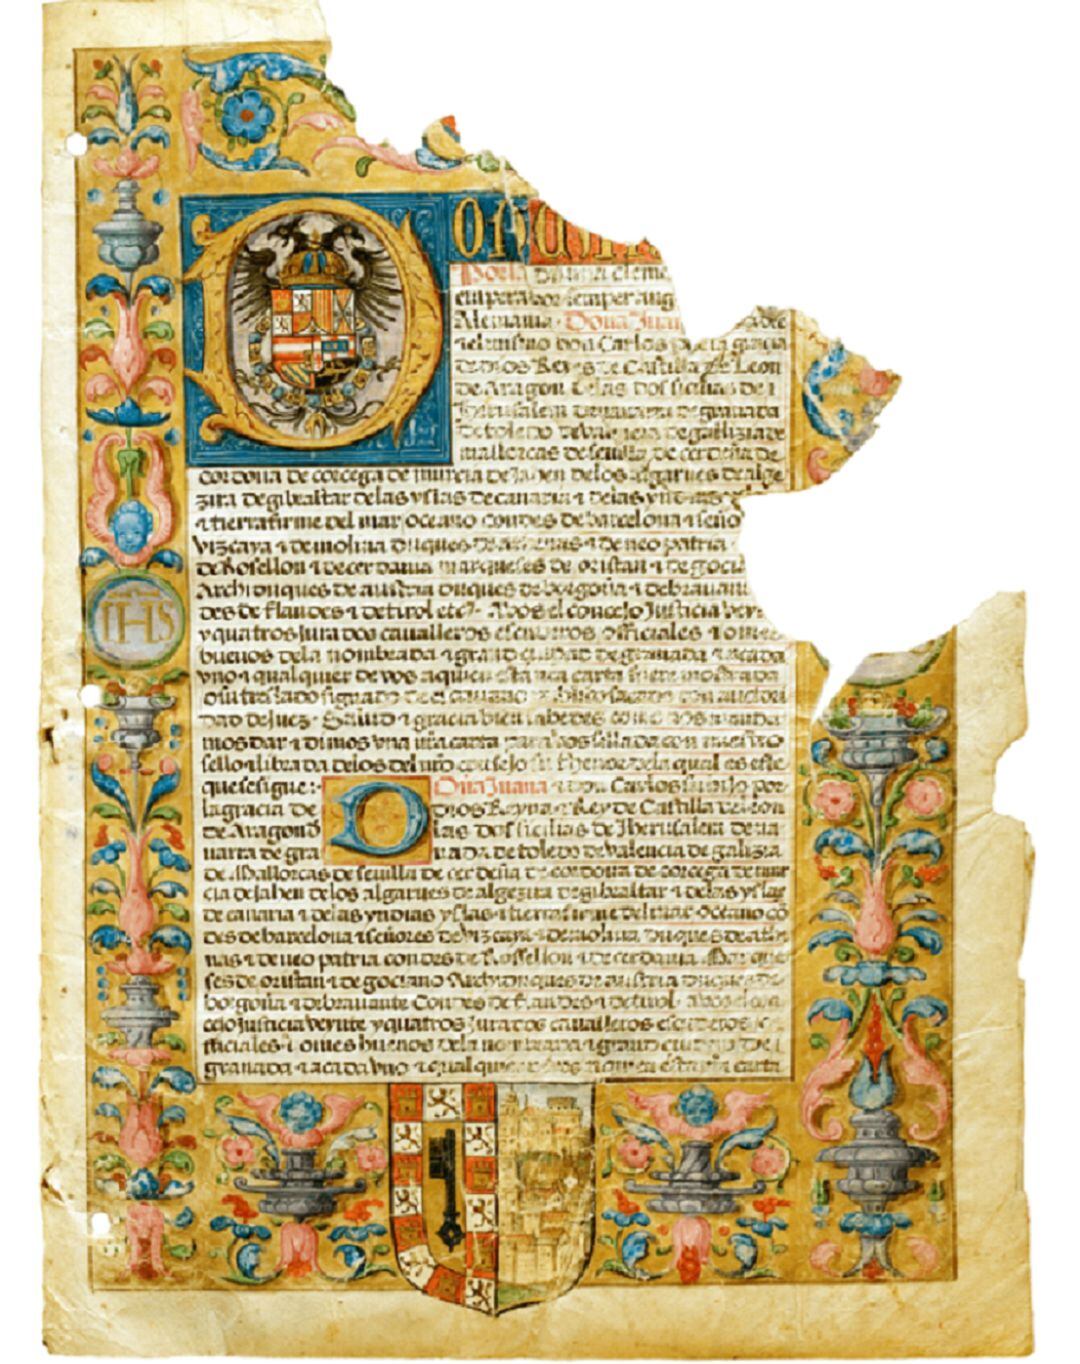 DON CA
Por la divina cleme
emperador semper aug
Alemania. Doña Juan
dre
y el mismo don Carlos por la gracia
de dios Reyes de Castilla de Leon
de Aragon de las dos sicilias de J
Iherusalem de navarra de granada
de toledo de valencia de gallizia de
mallorcas de sevilla de cerdeña de
cordoua de corcega de murcia de Jahen delos algarues de alge
zira de gibraltar delas yslas de canaria ⁊ delas yndias
⁊ tierra firme del mar oceano condes de barcelona ⁊ seño
Vizcaya ⁊ de molina duques de athenas ⁊ de neo patria
de Rosellon ⁊ decerdania marqueses de oristan ⁊ de gocia
Archiduques de austria duques de borgoña ⁊ de bravant
des de flandes ⁊ de tirol etc. Avos el concejo Justicia veyn
y quatros Jurados caualleros escuderos officiales ⁊ omes
buenos dela nombrada ⁊ grand ciudad de granada ⁊ acada
vno ⁊ qualquier de vos aquien esta nra carta fuere mostrada
o su treslado signado de escriuano publico sacado con auctori
dad de Juez. Salud ⁊ gracia bien sabedes como nos manda
mos dar ⁊ dimos vna nra carta para vos sellada con nuestro
sello ⁊ librada delos del nro consejo su thenor dela qual es este
que se sigue:-
Doña Juana ⁊ don Carlos su hijo por
la gracia de dios Reyna ⁊ Rey de Castilla de leon
de Aragon d las dos sicilias de Iherusalem de na
uarra de gra nada de toledo de valencia de galizia
de Mallorcas de seuilla de cerdeña de cordoua de corcega de mur
cia de Jahen de los algarues de algezira de gibraltar ⁊ delas yslas
de canaria ⁊ delas yndias yslas ⁊ tierra firme del mar oceano cō
des de barcelona ⁊ señores de vizcaya ⁊ de molina duques de athe
nas ⁊ de neo patria condes de Rossellon ⁊ de cerdania Marque
ses de oristan ⁊ de gociano Archiduques de austria duques de
borgoña ⁊ de bravante Condes de flandes ⁊ de tirol. Avos el con
cejo Justicia veynte y quatros Jurados caualleros escuderos
officiales ⁊ omes buenos dela nombrada ⁊ grand ciudad de
granada ⁊ acada vno ⁊ qualquier de vos aquien esta nra carta
IHS